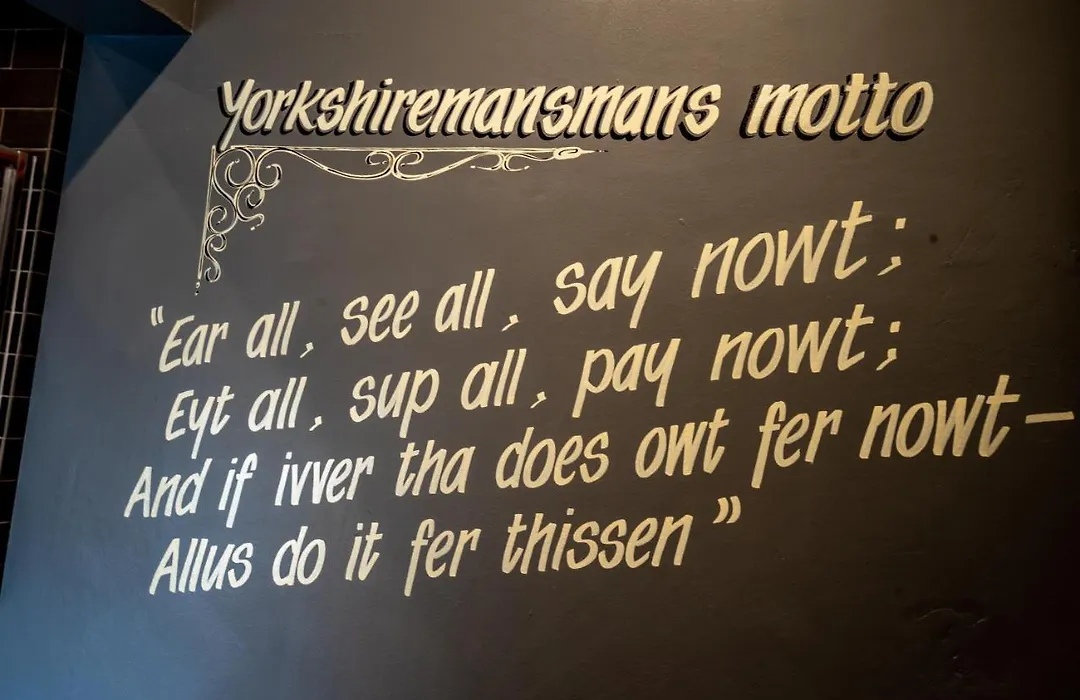 Yorkshiremansmans motto
"Ear all, see all, say nowt;
Eyt all, sup all, pay nowt;
And if ivver tha does owt fer nowt—
Allus do it fer thissen"